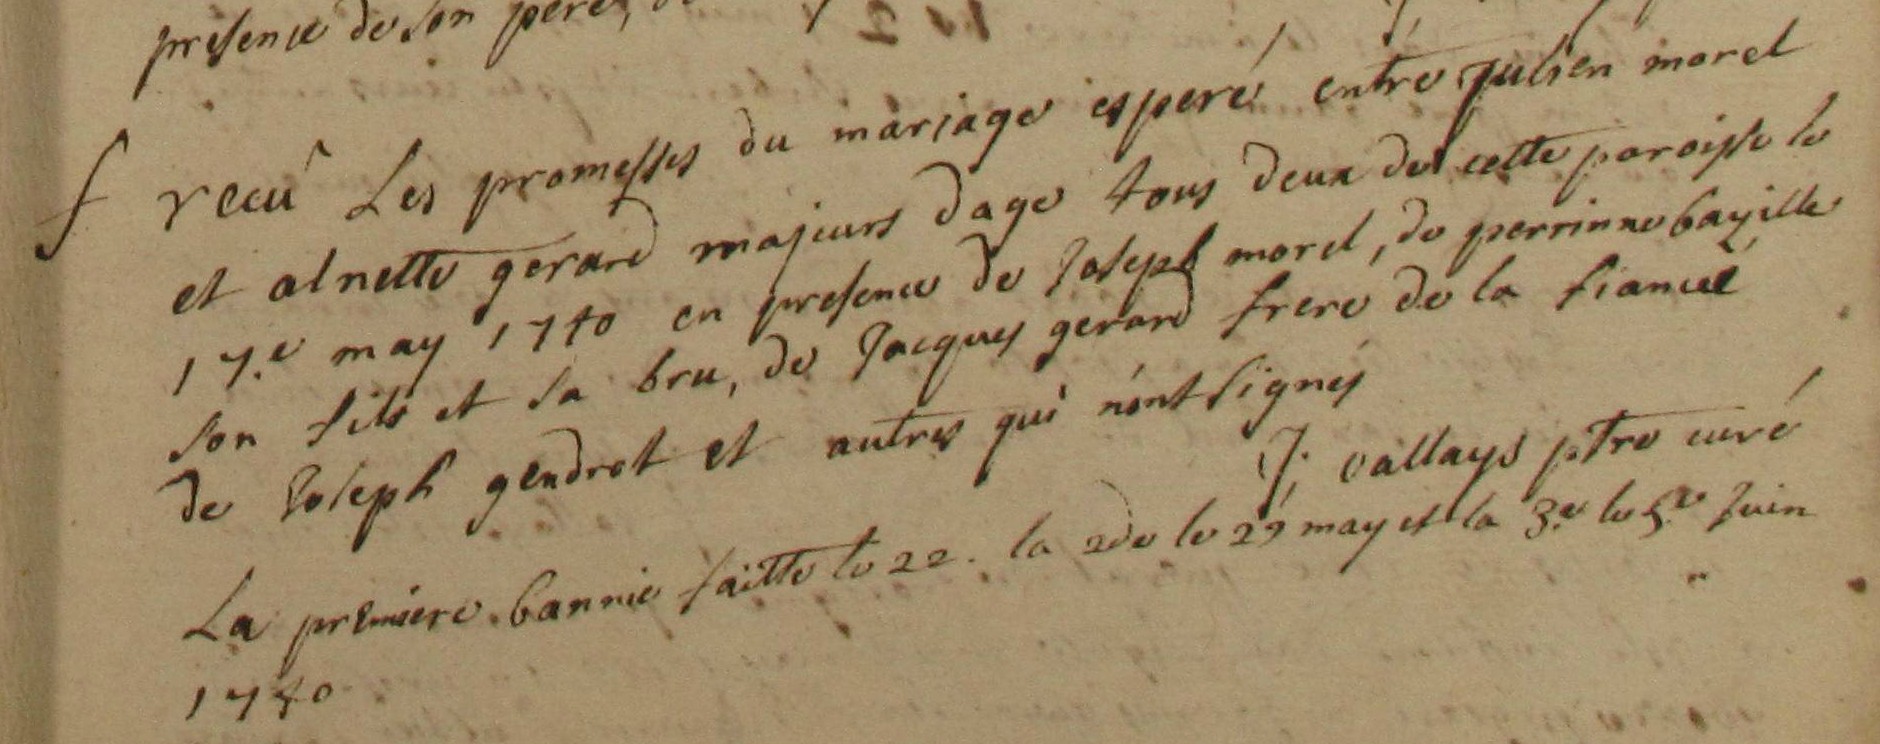 presence de son pere, de
f recu Les promesses du mariage esperé entre Julien morel
et olnette gerard majeurs dage tous deux de cette paroisse le
17.e may 1740 en presence de Joseph morel, de perrinne bayille
son fils et sa bru, de Jacques gerard frere de la fiancée
de Joseph gendrot et autres qui n'ont signés
J. vallays ptre curé
La premiere bannie faitte le 22. la 2de le 29 may et la 3.e le 5.e Juin
1740